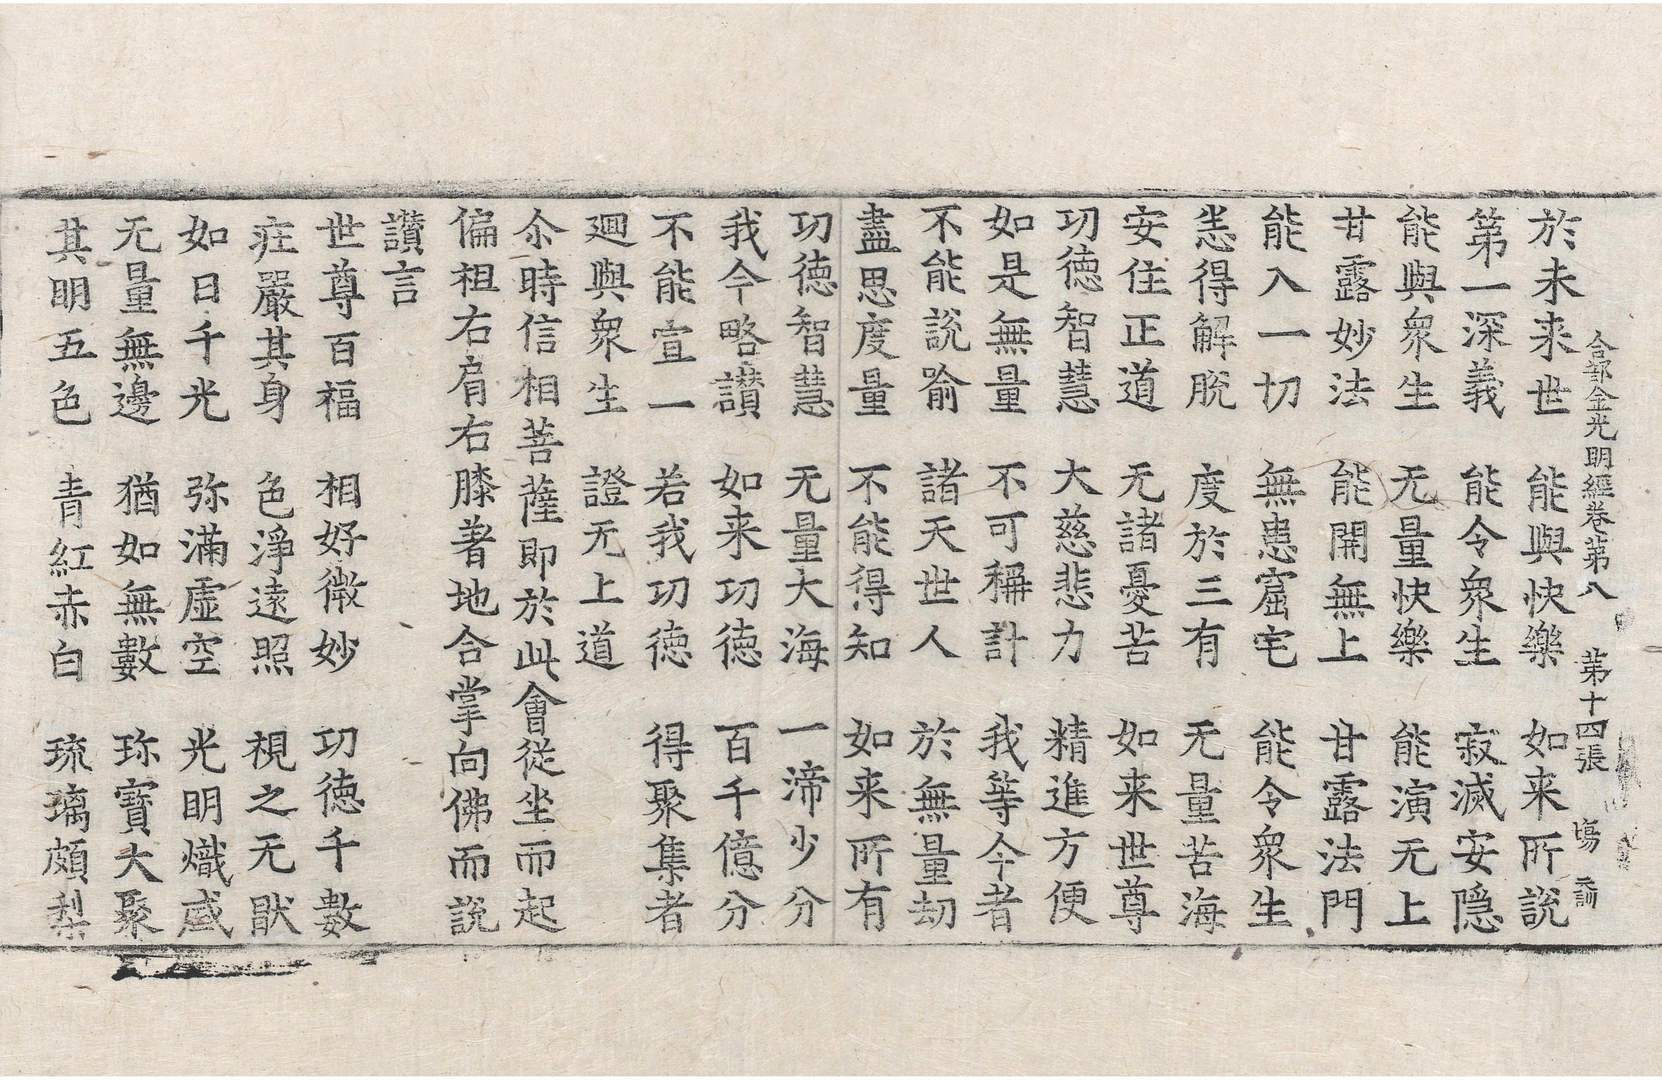 合部金光明經卷第八 第十四張 塲
於未来世 能與快樂 如来所說
第一深義 能令衆生 寂滅安隠
能與衆生 无量快樂 能演无上
甘露妙法 能開無上 甘露法門
能入一切 無患窟宅 能令衆生
悉得解脫 度於三有 无量苦海
安住正道 无諸憂苦 如来世尊
功德智慧 大慈悲力 精進方便
如是無量 不可稱計 我等今者
不能說喻 諸天世人 於無量劫
盡思度量 不能得知 如来所有
功德智慧 无量大海 一渧少分
我今略讃 如来功德 百千億分
不能宣一 若我功德 得聚集者
廻與衆生 證无上道
尒時信相菩薩即於此會從坐而起
偏袒右肩右膝著地合掌向佛而說
讃言
世尊百福 相好微妙 功德千數
莊嚴其身 色淨遠照 視之无猒
如日千光 弥滿虛空 光明熾盛
无量無邊 猶如無數 珎寶大聚
其明五色 青紅赤白 琉璃頗梨